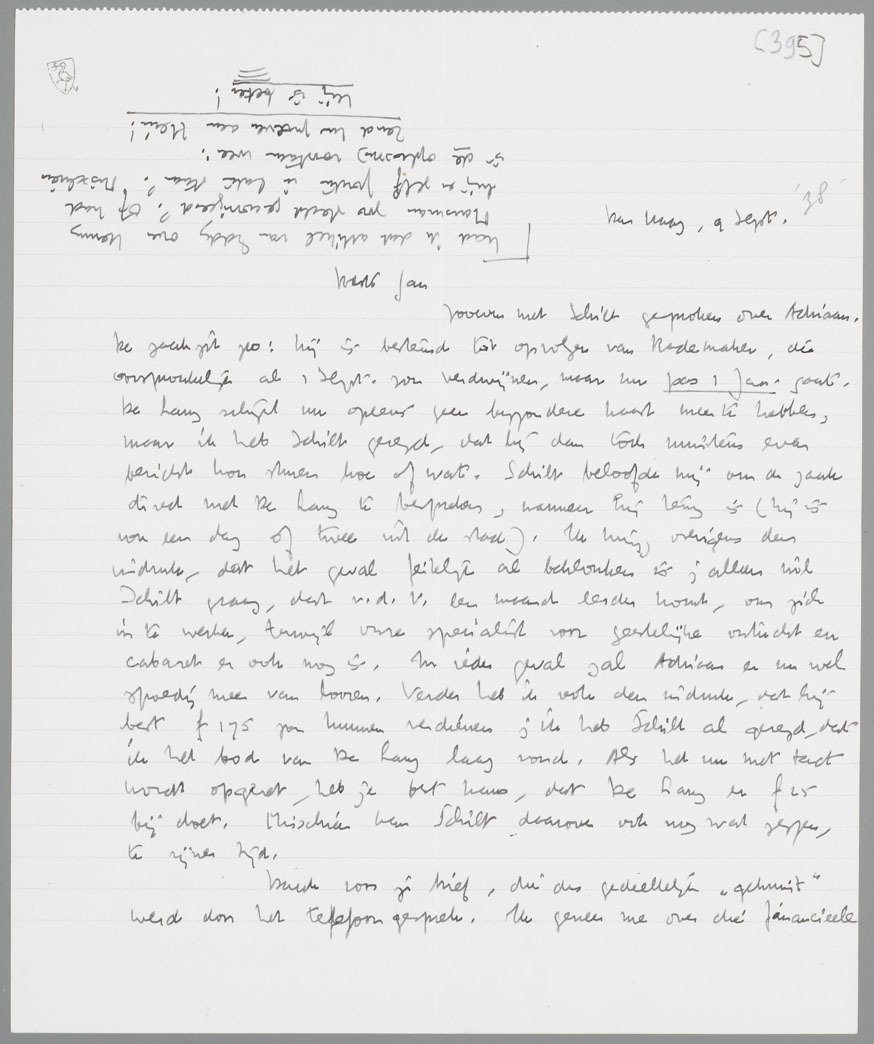 [395]
Den Haag, 9 Sept. '38
Beste Jan
Zooeven met Schilt gesproken over Adriaan.
De zaak zit zoo: hij is bestemd tot opvolger van Rademaker, die
oorspronkelijk al 1 Sept. zou verdwijnen, maar nu pas 1 Jan. gaat.
De Lang schijnt nu opeens geen byzondere haast meer te hebben,
maar ik heb Schilt gezegd, dat hij dan toch minstens even
bericht kon sturen hoe of wat. Schilt beloofde mij om de zaak
direct met De Lang te bespreken, wanneer hij terug is (hij is
voor een dag of twee uit de stad). Ik krijg overigens den
indruk, dat het geval feitelijk al beklonken is; alleen wil
Schilt graag, dat v.d.V. een maand eerder komt, om zich
in te werken, terwijl onze specialist voor geestelijke ontucht en
cabaret er ook nog is. In ieder geval zal Adriaan er nu wel
spoedig meer van hooren. Verder heb ik ook den indruk, dat hij
best f 175 zou kunnen verdienen; ik heb Schilt al gezegd, dat
ik het bod van De Lang laag vond. Als het nu met tact
wordt opgezet, heb je best kans, dat De Lang er f 25
bij doet. Misschien kan Schilt daarover ook nog wat zeggen,
te zijner tijd.
Dank voor je brief, die dus gedeeltelijk „gekruist"
werd door het telefoongesprek. Ik geneer me over die financieele
Had ik dat artikel van Eddy over Henny
Marsman zoo slecht gecorrigeerd? Of had
hij er zelf fouten in laten staan? Misschien
is de opbrengst
Zend hem proeven aan Henri!
Hij is beter!